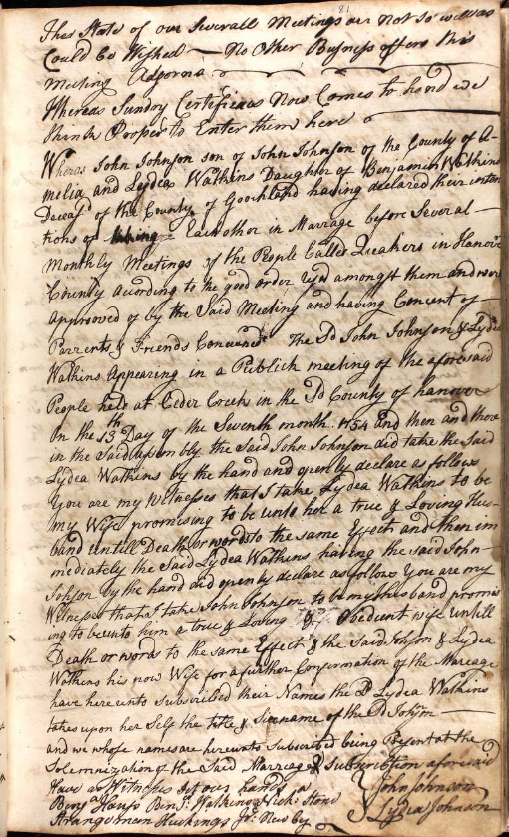 81
This State of our Severall Meetings are Not so well as
Could be Wished — No Other Business offers this
Meeting Adgorns
Whereas Sundry Certificates Now Comes to hand we
think Proper to Enter them here
Whereas John Johnson son of John Johnson of the County of A-
melia and Lydea Watkins Daughter of Benjamin Watkins
Deceasd of the County of Goochland having declared their inten
tions of taking Each other in Marrage before Several —
Monthly Meetings of the People Called Quakers in Hanover
County Acording to the good order used amongst them and were
Approoved of by the Said Meeting and having Concent of —
Parrents & Friends Concernd The Sd John Johnson & Lydea
Watkins Appearing in a Publick meeting of the aforesaid
People held at Ceder Creek in the Sd County of hanover
On the 13th Day of the Seventh month 1754 and then and there
in the Said Assembly the Said John Johnson did take the Said
Lydea Watkins by the hand and openly declare as follows
You are my Witnesses that I take Lydea Watkins to be
my Wife promising to be unto her a true & Loving Hus-
band untill Death or words to the same Effect and then im
mediately the Said Lydea Watkins having the said John
Johson by the hand did openly declare as follows You are my
Witnesses that I take John Johnson to be my husband promis
ing to be unto him a true & Loving & Obedient wife untill
Death or words to the same Effect & the Said Johson & Lydea
Watkins his now Wife for a further Confirmation of the Marriage
have here unto Subscribed their Names the Sd Lydea Watkins
takes upon her Self the title & Sirname of the Sd Johson —
and we whose names are hereunto Subscribed being Present at the
Solemnization of the Said Marriage & Subscribtion aforesaid
Have as Witnesses Set our hands John Johnson
Benja Benja Watkins Lydia Johnson
Huchings Jr. Newby